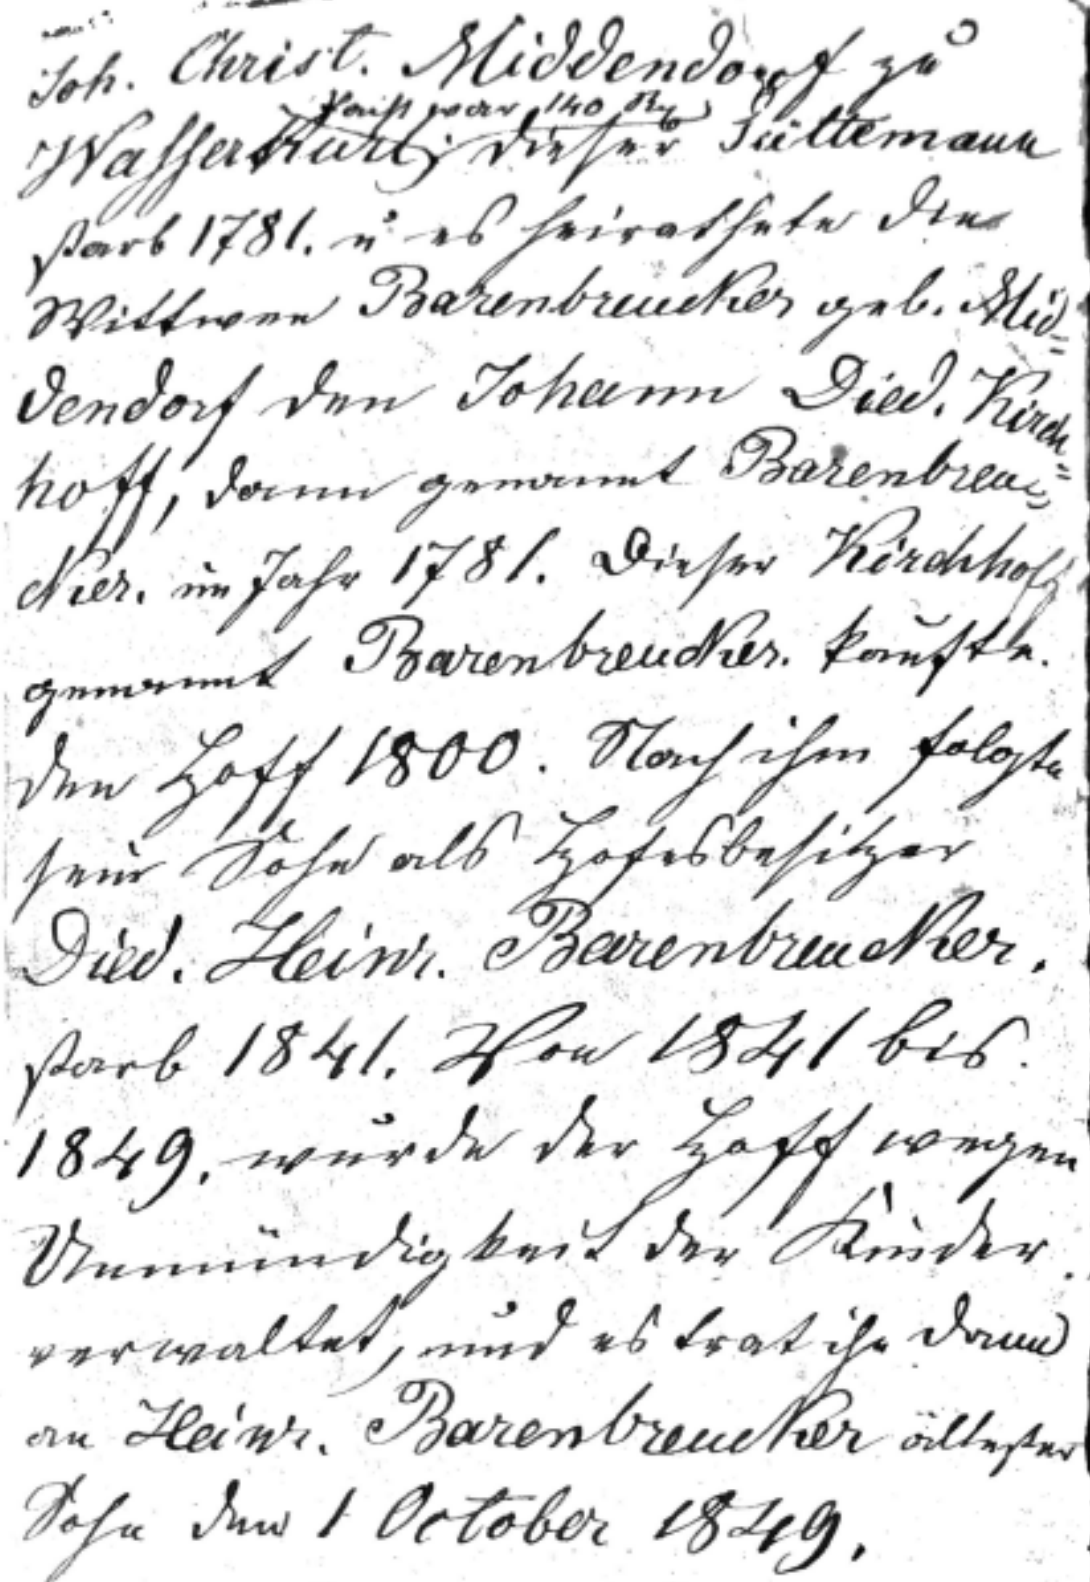 Joh. Christ. Middendorf zu
Pacht war 140 Rt
Wasserkurl; dieser Sültemann
starb 1781. u es heirathete die
Wittwee Barenbreucker geb. Mid=
dendorf den Johann Died. Kirch=
hoff, dann genannt Barenbreu=
cker. im Jahr 1781. Dieser Kirchhoff
genannt Barenbreucker. kaufte.
den Hoff 1800. Nach ihm folgte
sein Sohn als Hofesbesitzer
Died. Heinr. Barenbreucker.
starb 1841. Von 1841 bis
1849. wurde der Hoff wegen
Unmündigkeit der Kinder
verwaltet, und es trat ihn dann
an Heinr. Barenbreucker ältester
Sohn den 1 October 1849.